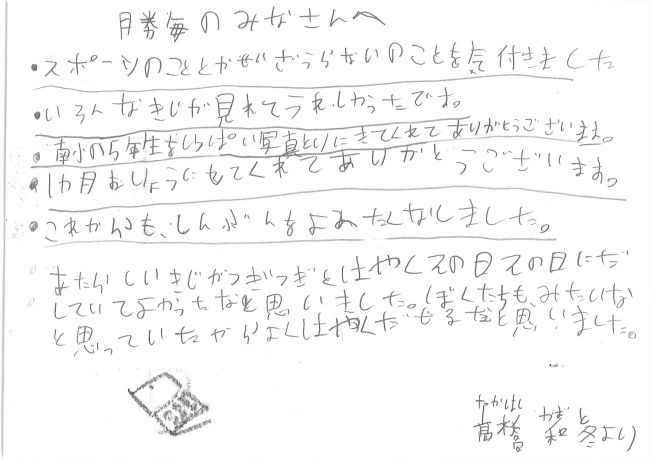 月勝毎のみなさんへ
・スポーツのこととかぜんぜんらないのことを気付きました
・いろんなきじが見れてうれしかったです。
・南小の5年生をいっぱい写真とりにきてくれてありがとうございます。
・1か月むりょうにしてくれてありがとうございます。
・これからも、しんぶんをよみたくなりました。
あたらしいきじがつぎつぎとはやくその日その日にだ
していてよかったなと思いました。ぼくたちも、みたいな
と思っていたからよくはやくだせるなと思いました。
たかはし かずと
高橋 和冬より